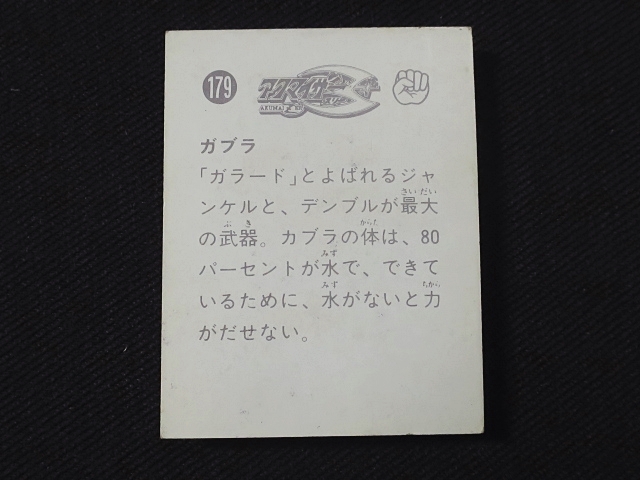 179
アクマイザー
AKUMAIZER
ガブラ
「ガラード」とよばれるジャ
ンケルと、デンブルが最大
さいだい
の武器。カブラの体は、80
ぶき
からだ
パーセントが水で、できて
みず
いるために、水がないと力
みず
ちから
がだせない。